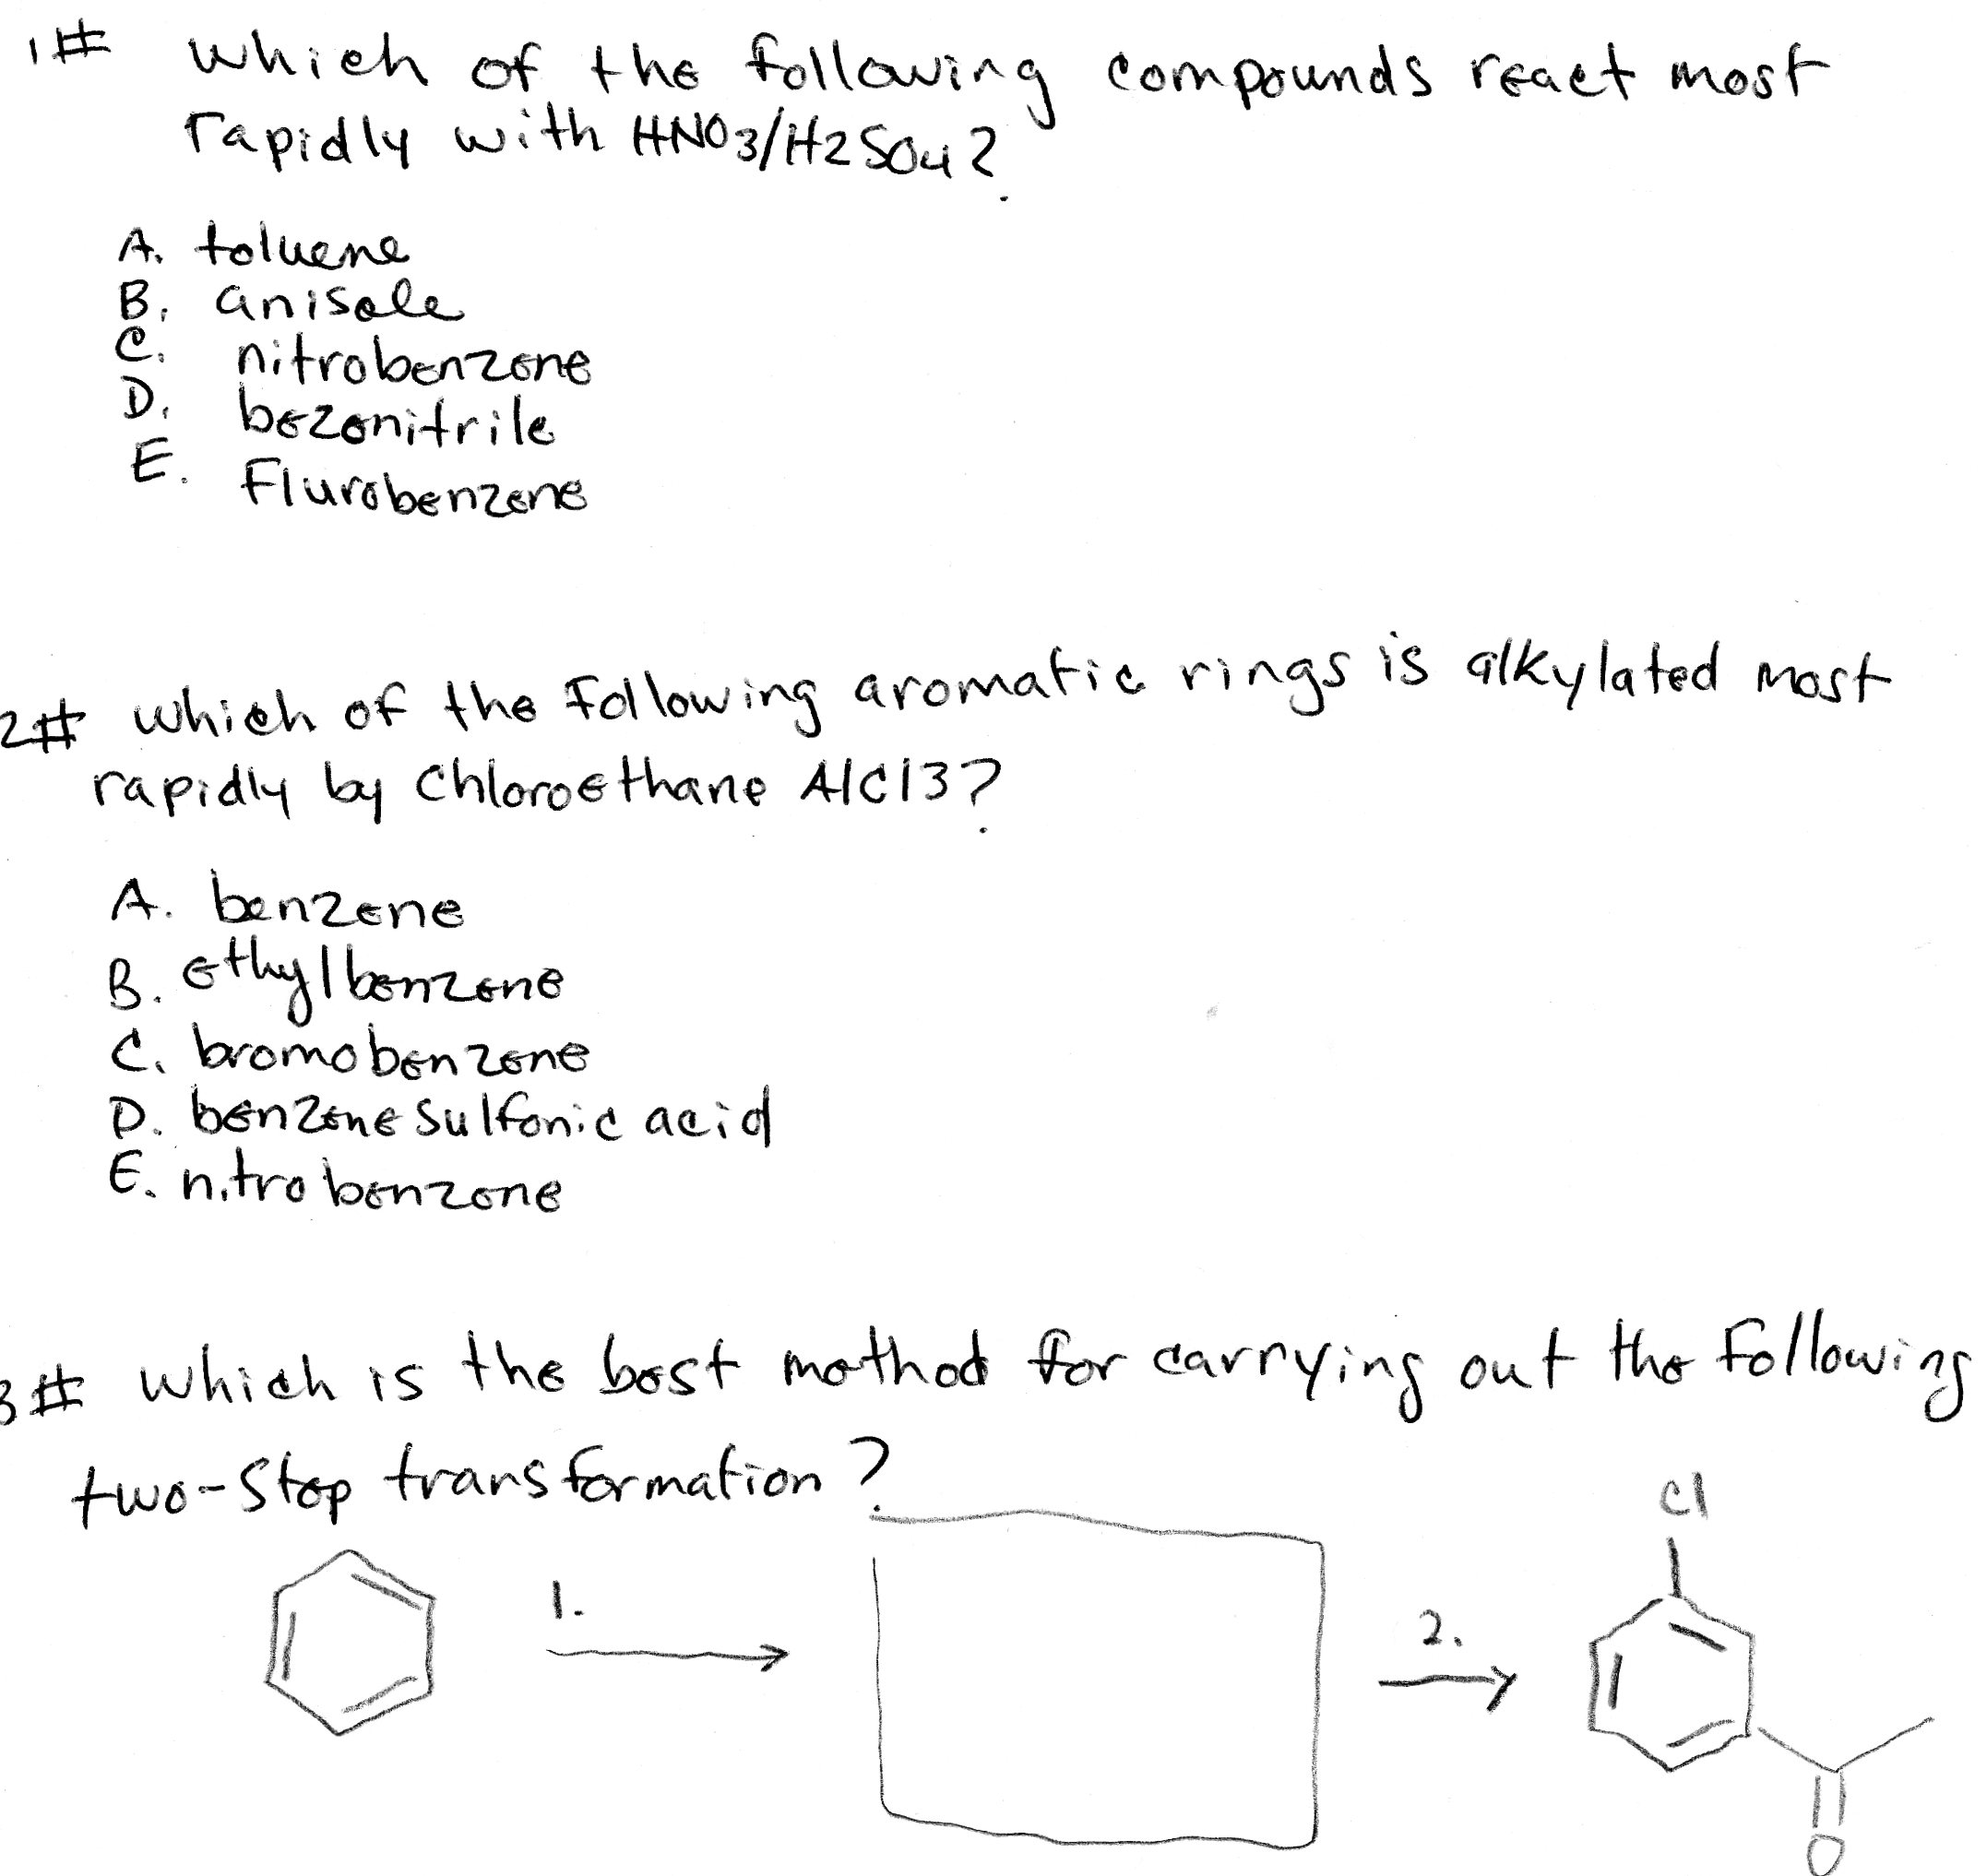 1# Which of the following compounds react most
rapidly with HNO3/H2SO4?
A. toluene
B. anisole
C. nitrobenzene
D. bezenitrile
E. Flurobenzene
2# which of the following aromatic rings is alkylated most
rapidly by Chloroethane AlCl3?
A. benzene
B. ethylbenzene
C. bromobenzene
D. benzene sulfonic acid
E. nitrobenzene
3# which is the best method for carrying out the following
two-step transformation?
Cl
1.
2.
O